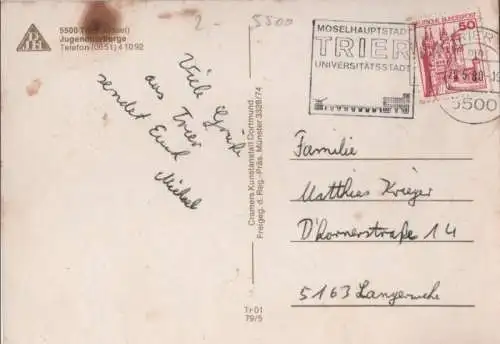 2 - 5500
5500 Trier (Mosel)
Jugendherberge
Telefon (0651) 41092
DJH
Viele Grüße
aus Trier
sendet Euch
Michael
Cramers Kunstanstalt Dortmund
Freigeg. d. Reg.-Präs. Münster 3328/74
Tr 01
79/5
MOSELHAUPTSTADT
TRIER
UNIVERSITÄTSSTADT
DEUTSCHE BUNDESPOST
50
TRIER
5.80
5500
Familie
Matthias Krieger
D'hornerstraße 14
5163 Langerwehe